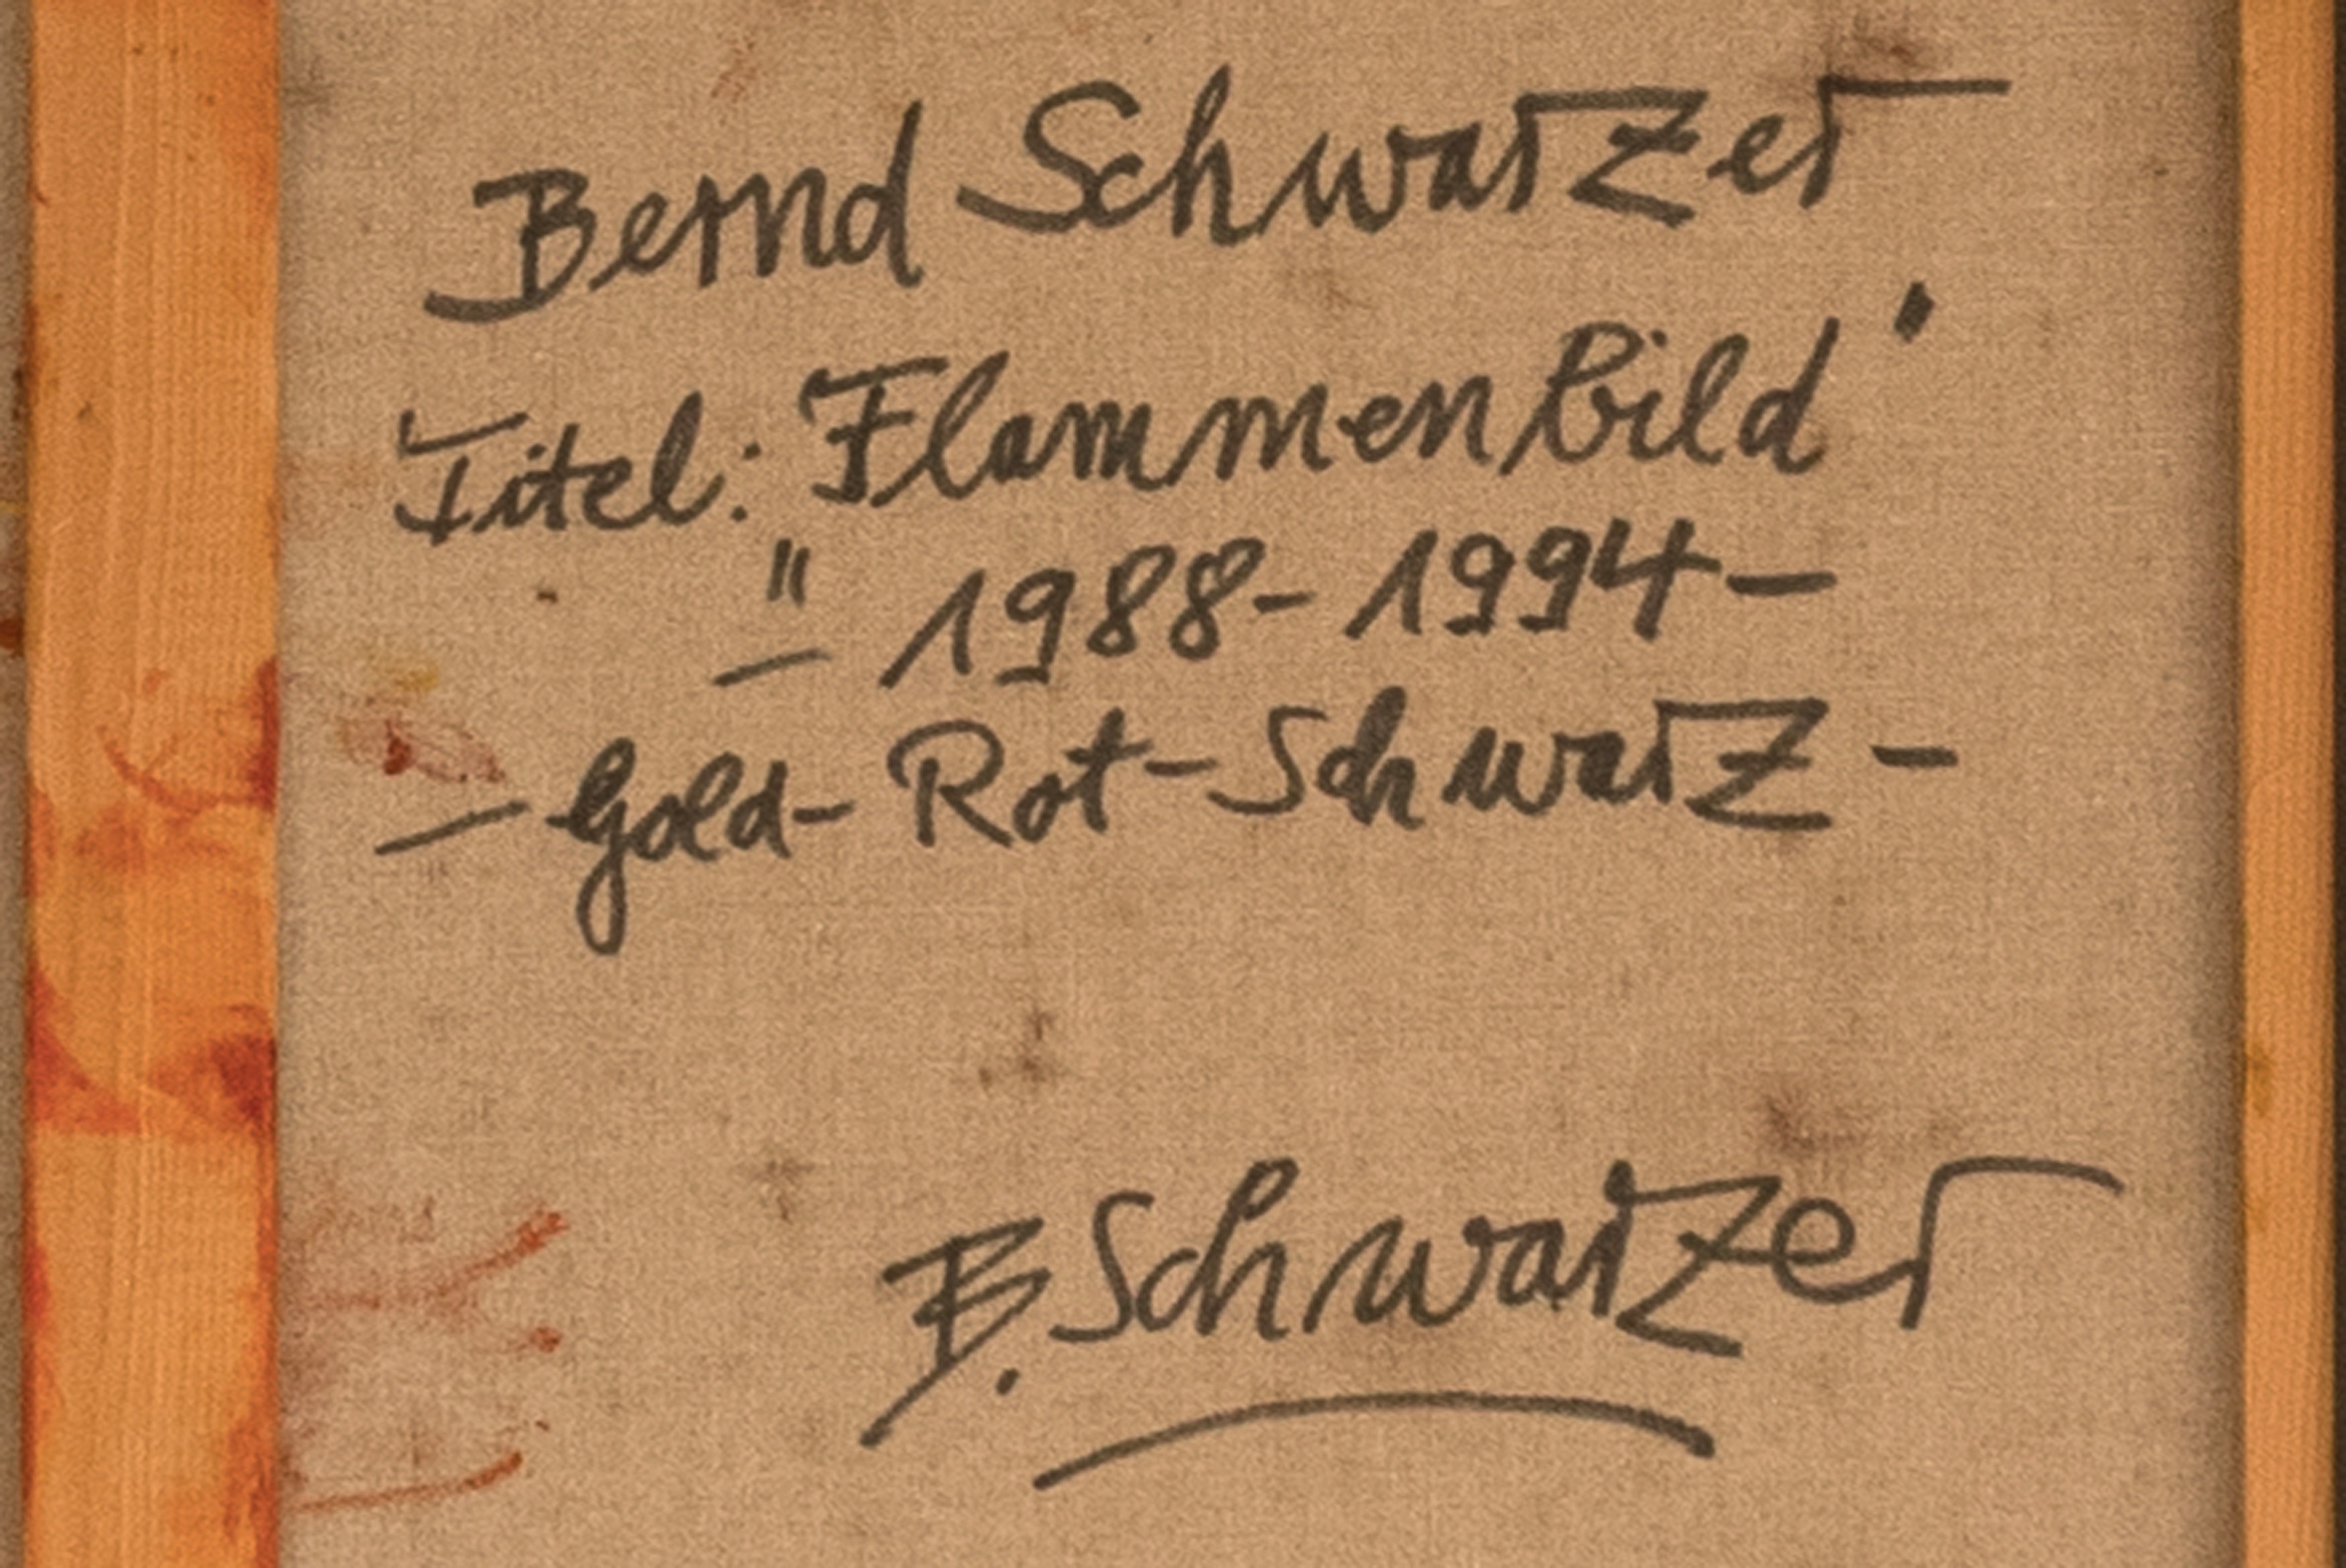 Bernd Schwarzer
Titel: Flammenbild"
" - 1988-1994-
-Gold-Rot-Schwarz-
B. Schwarzer